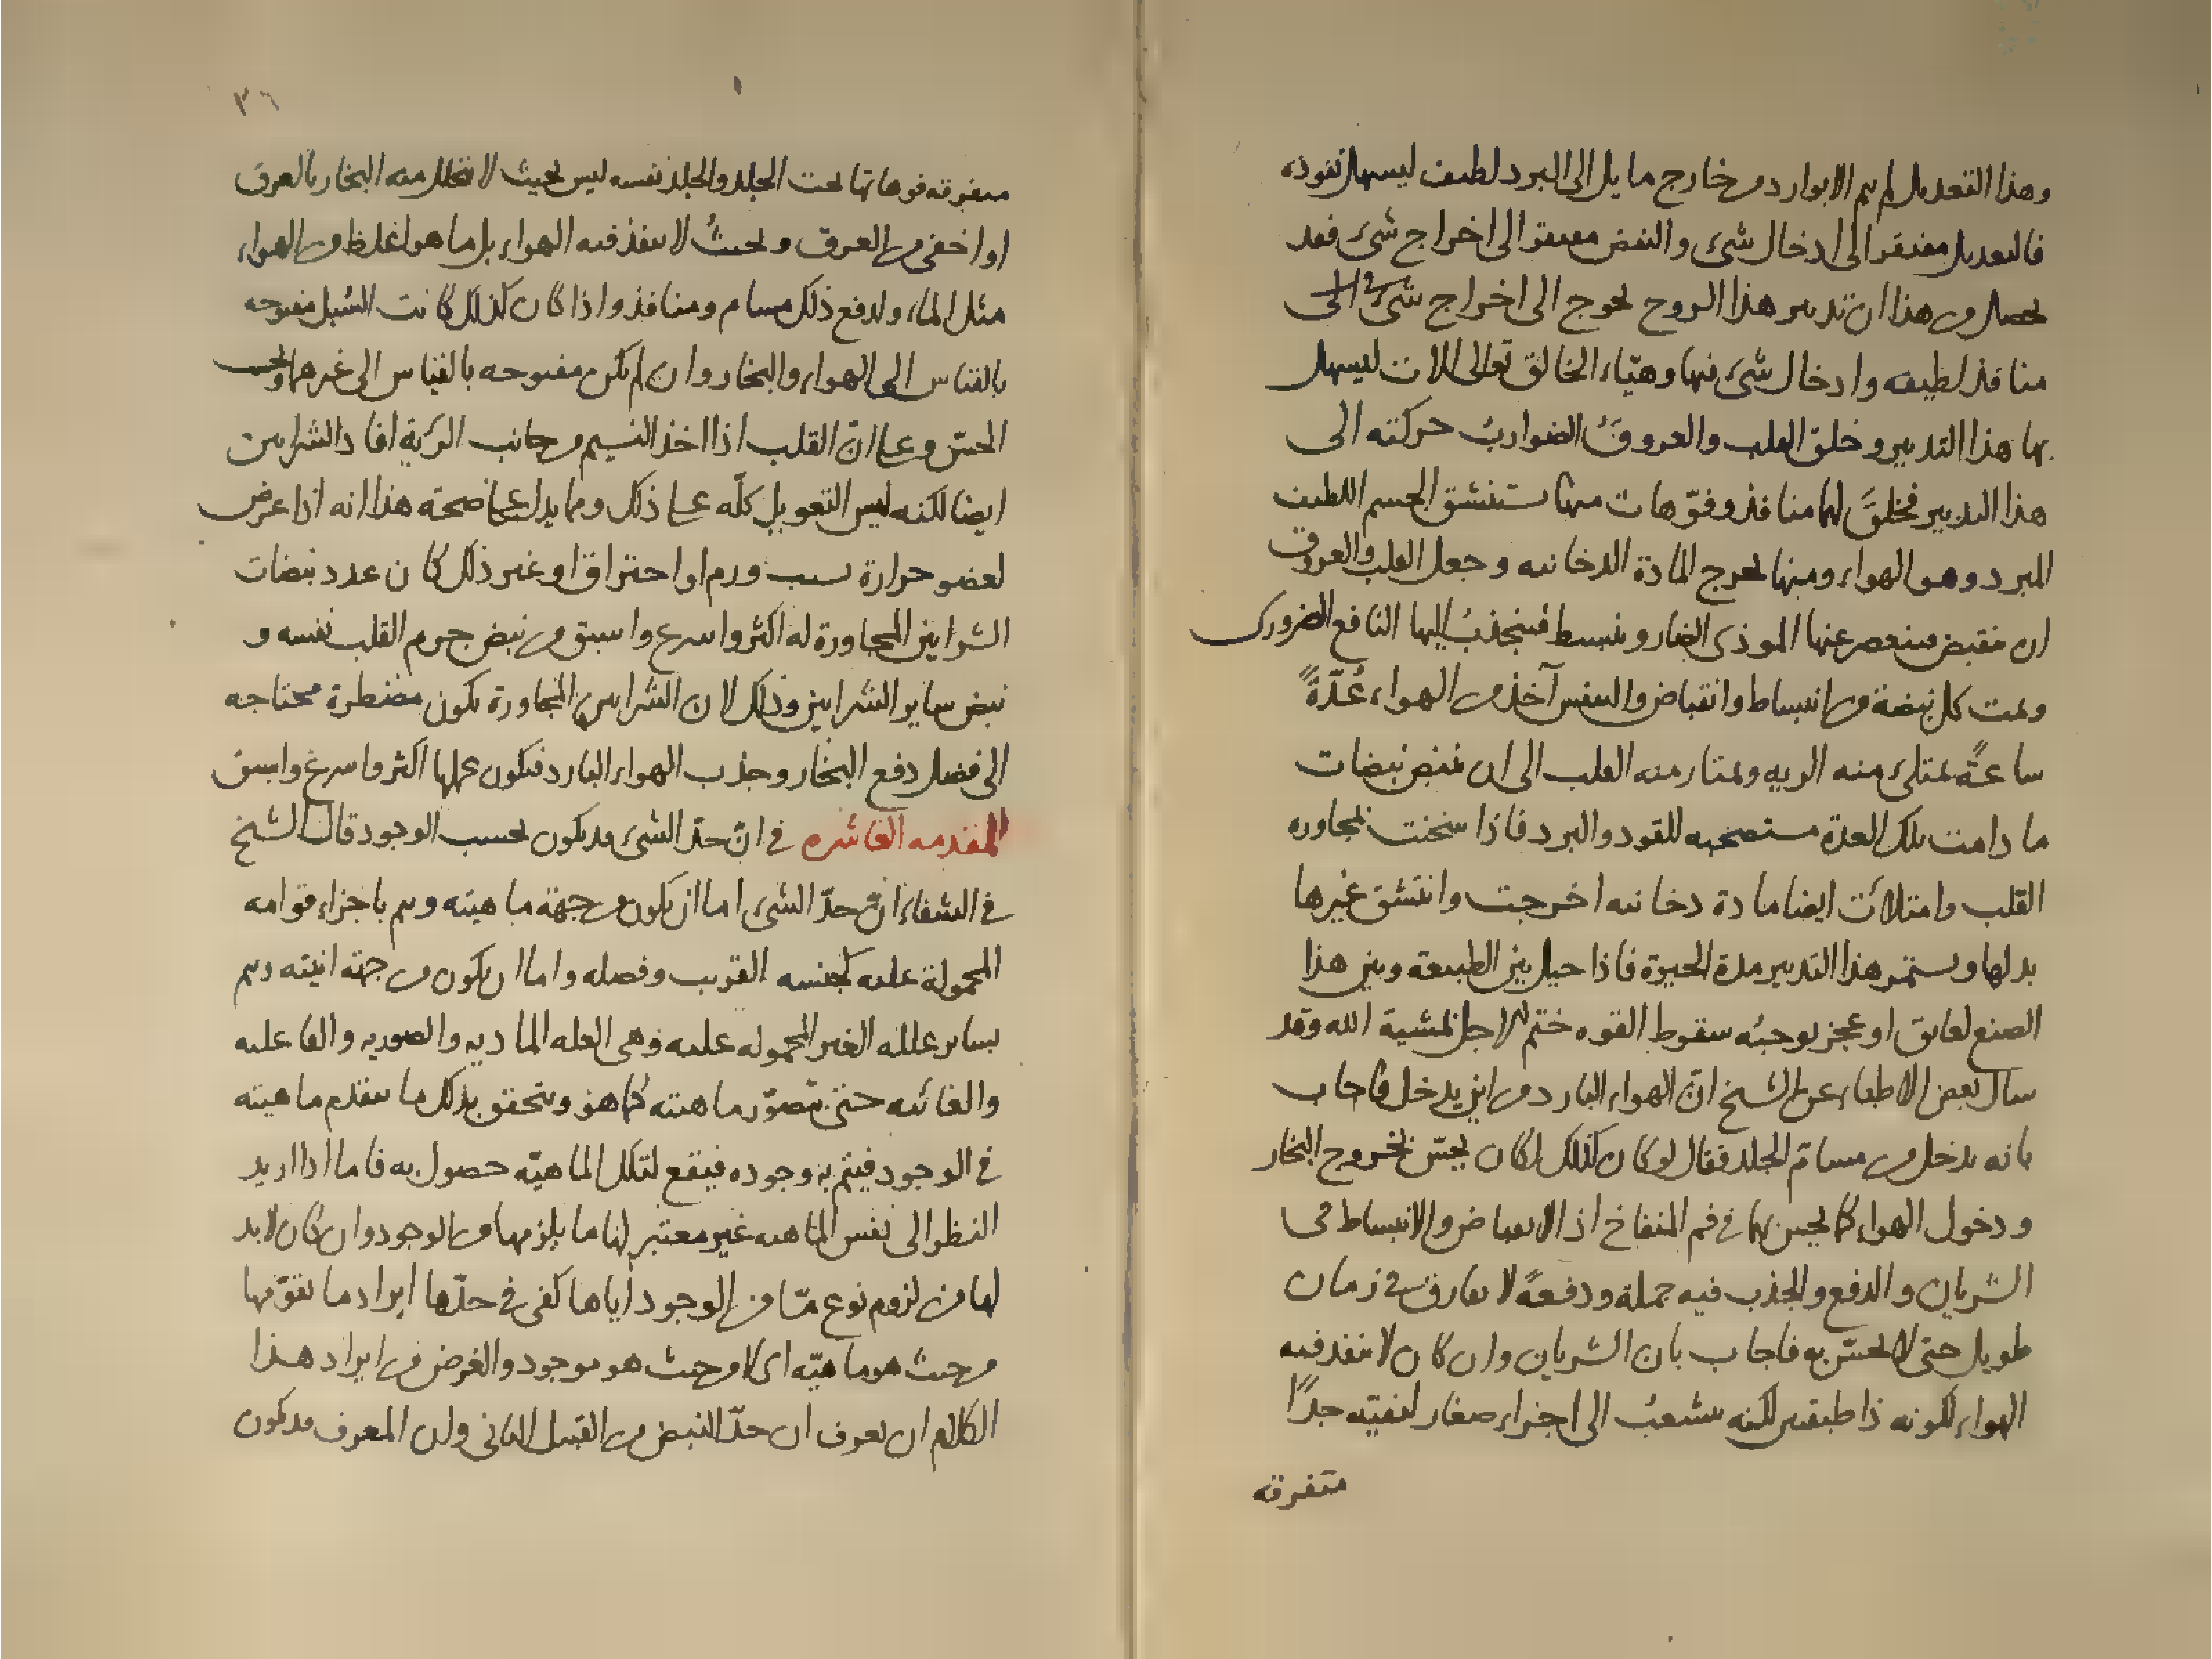 وهذا التعديل لم يتم الا بوارد من خارج مايل الى البرد لطيف ليسهل نفوذه
فالتعديل مفتقر الى ادخال شىء والنفض مفتقر الى اخراج شىء فقد
تحصل من هذا ان تدبير هذا الروح تحوج الى اخراج شىء من
منافذ لطيفه وادخال شىء فيها وهيّاء الخالق تعالى الات ليسهل
بها هذا التدبير وخلق القلب والعروقُ الضواربُ حركته الى
هذا التدبير فخلقَ لها منافذ وفوّهات منها تستنشق الجسم اللطيف
المبرد وهو الهواء ومنها تخرج المادة الدخانيه وجعل القلب والعروق
ان تنقبض فينعصر عنها الموذى الضار وينبسط فينجذبُ اليها النافع الضرورى
وتمت كل نبضة من انبساط وانقباض والتنفس آخذ من الهواء عُدّةً
ساعةً تمتلىء منه الريه وتمتار منه القلب الى ان تنبض نبضات
ما دامت تلك العدة مستصحبه للقود والبرد فاذا سخنت لمجاوره
القلب وامتلأت ايضا مادة دخانيه اخرجت وانتشق غيرها
بدلها ويستمر هذا التدبير مدة الحيوة فاذا حيل بين الطبيعة وبين هذا
الصنع لعايق او عجز يوجبُه سقوط القوه ختم لها جل بمشية الله وقد
سال بعض الاطباء عن الشيخ انّ الهواء البارد من اين يدخل فاجاب
بانه يدخل من مسامّ الجلد فقال لو كان كذلك لكان يحسّ بخروج البخار
ودخول الهواء كما يحس بها فى فم المنفاخ اذ الانقباض والانبساط فى
الشريان والدفع والجذب فيه جملة ودفعةً لا يفارق فى زمان
طويل حتى لا تحسّ به فاجاب بان الشريان وان كان لا ينفذ فيه
الهواء لكونه ذا طبقتين لكنه يتشعبُ الى اجزاء صغار ليفيّه جدًا
متفرقه
٣٦
متفرقه فوهاتها تحت الجلد والجلد نفسه ليس بحيث لا يتخلل منه البخار بالعرق
او اخفى من العرق وبحيثُ لا ينفذ فيه الهواء بل ما هو اغلظ من الهواء
مثل الماء ولدفع ذلك مسام ومنافذ واذا كان كذلك كانت السُبل مفتوحه
بالقياس الى الهواء والبخار وان لم يكن مفتوحه بالقياس الى غيرهما وبحسب
الحسّ وعلى انّ القلب اذا اخذ النسيم من جانب الرئة افاد الشرايين
ايضا لكنه ليس التعويل كلّه على ذلك ومما يدل على صحة هذا انه اذا عرض
لعضو حرارة بسبب ورم او احتراق او غير ذلك كان عدد نبضات
الشرايين المجاورة له اكثر واسرع واسبق من نبض جرم القلب نفسه و
نبض ساير الشرايين وذلك لان الشرايين المجاورة يكون مضطرة محتاجه
الى فضل دفع البخار وجذب الهواء البارد فتكون عملها اكثر واسرع واسبق
المقدمه العاشره فى انّ حدّ الشىء قد يكون بحسب الوجود قال الشيخ
فى الشفاء انّ حدّ الشىء اما ان يكون من جهة ماهيته ويتم باجزاء قوامه
المحمولة عليه كجنسه القريب وفصله واما ان يكون من جهة انيته ويتم
بساير علله الغير المحموله عليه وهى العله الماديه والصوريه والفاعليه
والغائيه حتى يتصوّر ماهيته كما هو ويتحقق بذلك ما يتقدم ماهيته
فى الوجود فيتم به وجوده فيقع لتلك الماهيّه حصول به فاما اذا اريد
النظر الى نفس الماهيه غير معتبر لها ما يلزمها من الوجود وان كان لا بد
لها من لزوم نوع مّا من الوجود اياها كفى فى حدّها ايراد ما يقوّمها
من حيث هو ماهيّه اى لا من حيث هو موجود والغرض من ايراد هذا
الكلام ان تعرف ان حدّ النبض من القبيل الثانى ولان المعرف قد يكون